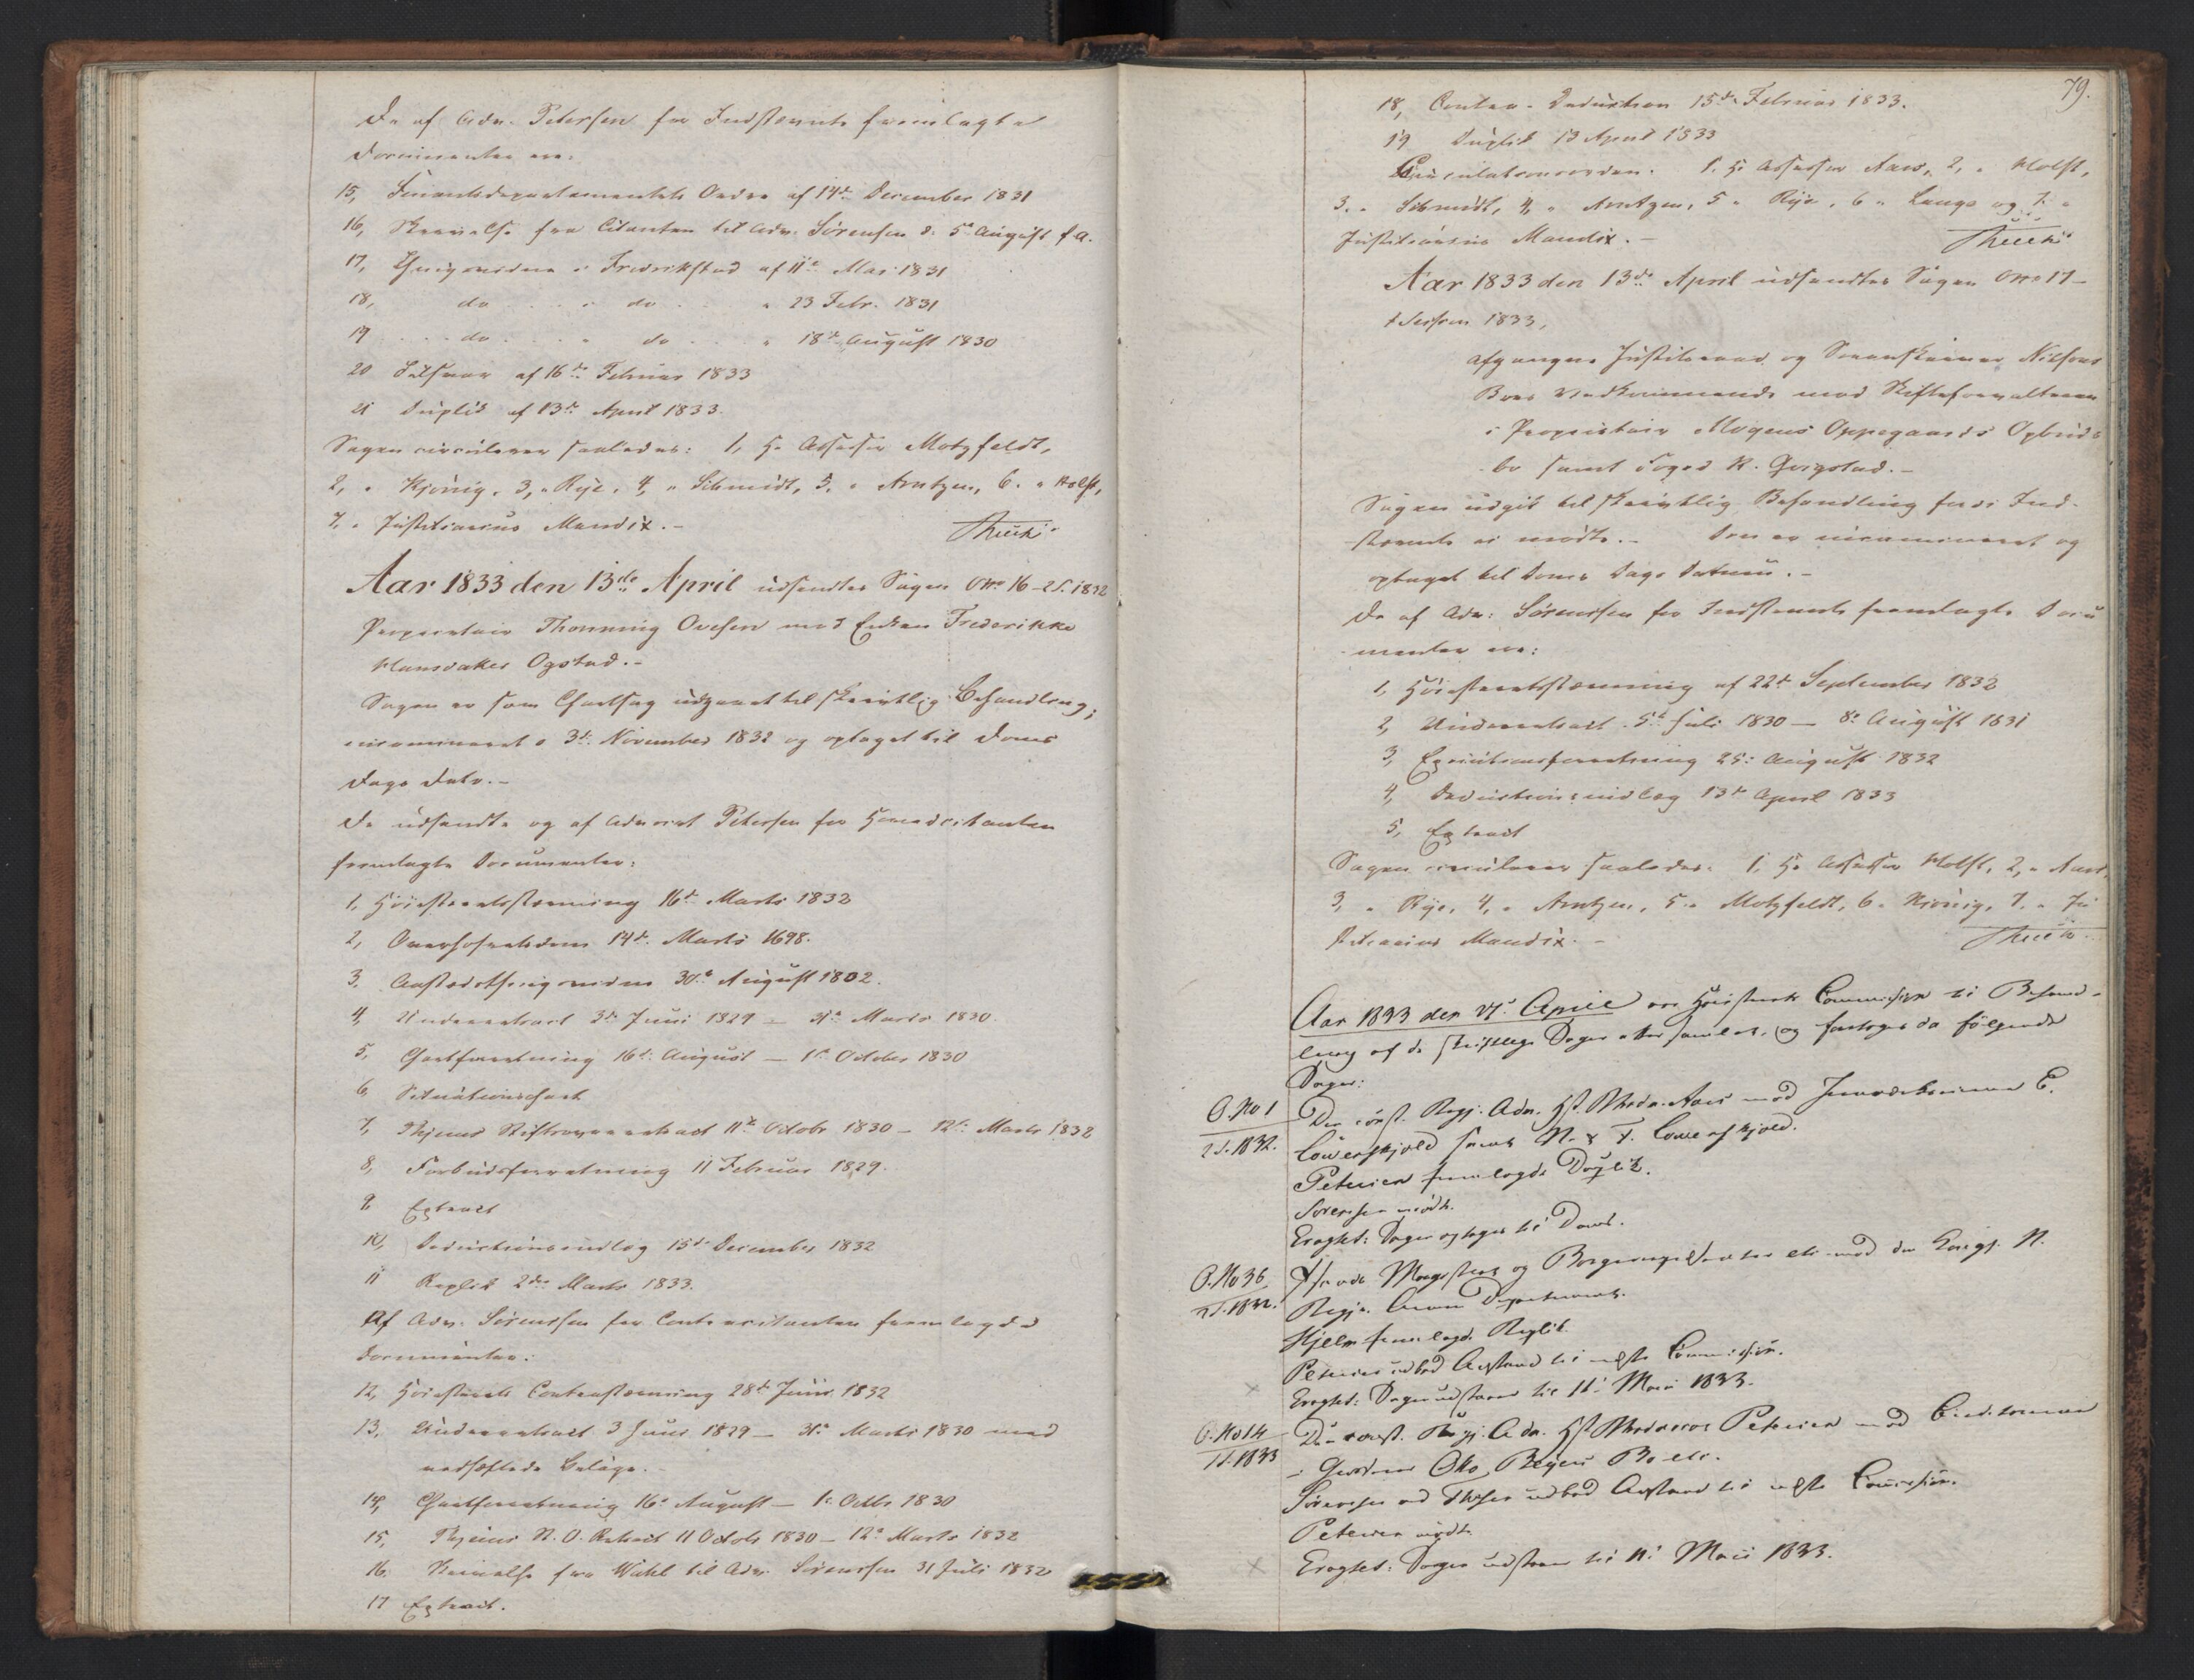 De af Adv. Petersen for Indstevnte fremlagte
Documenter ere:
15, Finantsdepartementets Ordre af 14de December 1831
16, Skrivelse fra Citanten til Adv. Sørensen d. 5te August f. A.
17, Thingsvidne i Fredrikstad af 11te Mai 1831
18, do i do " 23 Febr. 1831
19 do " do " 18de August 1830
20 Tilsvar af 16de Februar 1833
21 Duplik af 13de April 1833.
Sagen circulerer saaledes: 1, Hr Assessor Motzfeldt,
2, " Kjønig, 3, " Rye, 4, " Schmidt, 5, " Arntzen, 6. " Holst,
7, " Justitiarius Mandix.-
Aar 1833 den 13de April udsendtes Sagen No 16 - 2 S. 1832
Proprietair Thomming Ovesen mod Enken Frederikke
Hansdatter Ogstad.-
Sagen er som Chartsag udgaaet til skrivtlig Behandling;
incamineret d 3de November 1832 og optaget til Doms
Dags Dato.-
De udsendte og af Advocat Petersen for Hovedcitanten
fremlagte Documenter:
1, Høiesteretsstevning 16de Marts 1832
2, Overhofretsdom 14de Marts 1698.
3. Aastedsthingsvidne 30te August 1802.
4, Underretsact 3de Juni 1829 - 31te Marts 1830.
5, Chartforretning 16de August - 1te October 1830
6, Situationschart
7, Thjems Stiftsoverretsact 11te Octobr 1830 - 12te Marts 1832
8, Forbudsforretning 11 Februar 1829.
9, Extract
10, Deductionsindlæg 15de December 1832
11 Replik 2den Marts 1833.
Af Adv. Sørensen for Contracitanten fremlagde
Documenter:
12, Høiesterets Contrastevning 28de Juni 1832
13, Underretsact 3 Juni 1829 - 31te Marts 1830 med
vedhæftede Bilage.-
14, Chartforretning 16de August - 1te Octbr 1830
15, Thjems St. O. Retsact 11 Octobr 1830 - 12te Marts 1832
16. Skrivelse fra Wahl til Adv. Sørensen 31 Juli 1832
17 Extract.
79.
18, Contra-Deduction 15de Februar 1833.
19 Duplik 13 April 1833
Circulationsorden: 1. Hr Assessor Aars, 2, " Holst,
3. " Schmidt, 4, " Arntzen, 5 " Rye, 6 " Lange og 7. "
Justitiarius Mandix.-
Aar 1833 den 13de April udsendtes Sagen No 17 -
1 Session 1833,
afgangne Justitsraad og Sorenskriver Nilsons
Boes Vedkommende mod Skifteforvalteren
i Proprietair Mogens Oppegaards Opbuds
bo samt Foged K. Qvigstad.-
Sagen udgik til skrivtlig Behandling fordi Ind-
stevnte ei mødte.- Den er incamineret og
optaget til Doms Dags Datum.-
De af Adv: Sørensen for Indstevnte fremlagte Docu
menter ere:
1, Høiesteretsstevning af 22de September 1832
2, Underretsact 5te Juli 1830 - 8de August 1831
3, Executionsforretning 25: August 1832
4, Deductionsindlæg 13de April 1833
5, Extract
Sagen circulerer saaledes: 1, Hr Assessor Holst, 2, " Aars,
3, " Rye, 4, " Arntzen, 5 " Motzfeldt, 6 " Kjønig, 7. " Ju
stitiarius Mandix.-
Aar 1833 den 27de April var Høiesterets Commission til Behand-
ling af de skriftlige Sager atter samlet, og foretoges da følgende
Sager:
O. No 1
2 S. 1832.
Den const. Regj. Adv. Hst. Aars mod E.
Løvenskjold samt N. & F. Løvenskjold.
Petersen fremlagde Duplik.
Sørensen mødte.
Eragtet: Sagen optages til Doms.
O. No 36
2 S. 1832.
Magistrat og Borgerrepresentanter etc. mod den Kongl. N.
Regjs. Departement.
Hjelm fremlagde Replik.
Petersen udbad Anstand til næste Commission.
Eragtet: Sagen udstaaer til 11te Maii 1833.
O. No 14
1 S. 1833
Den const. Regj. Adv. Hst. Petersen mod Creditorerne
i Otto Beyers Bo etc.
Sørensen udbad Anstand til næste Commission.
Petersen mødte
Eragtet: Sagen udstaaer til 11te Maii 1833.